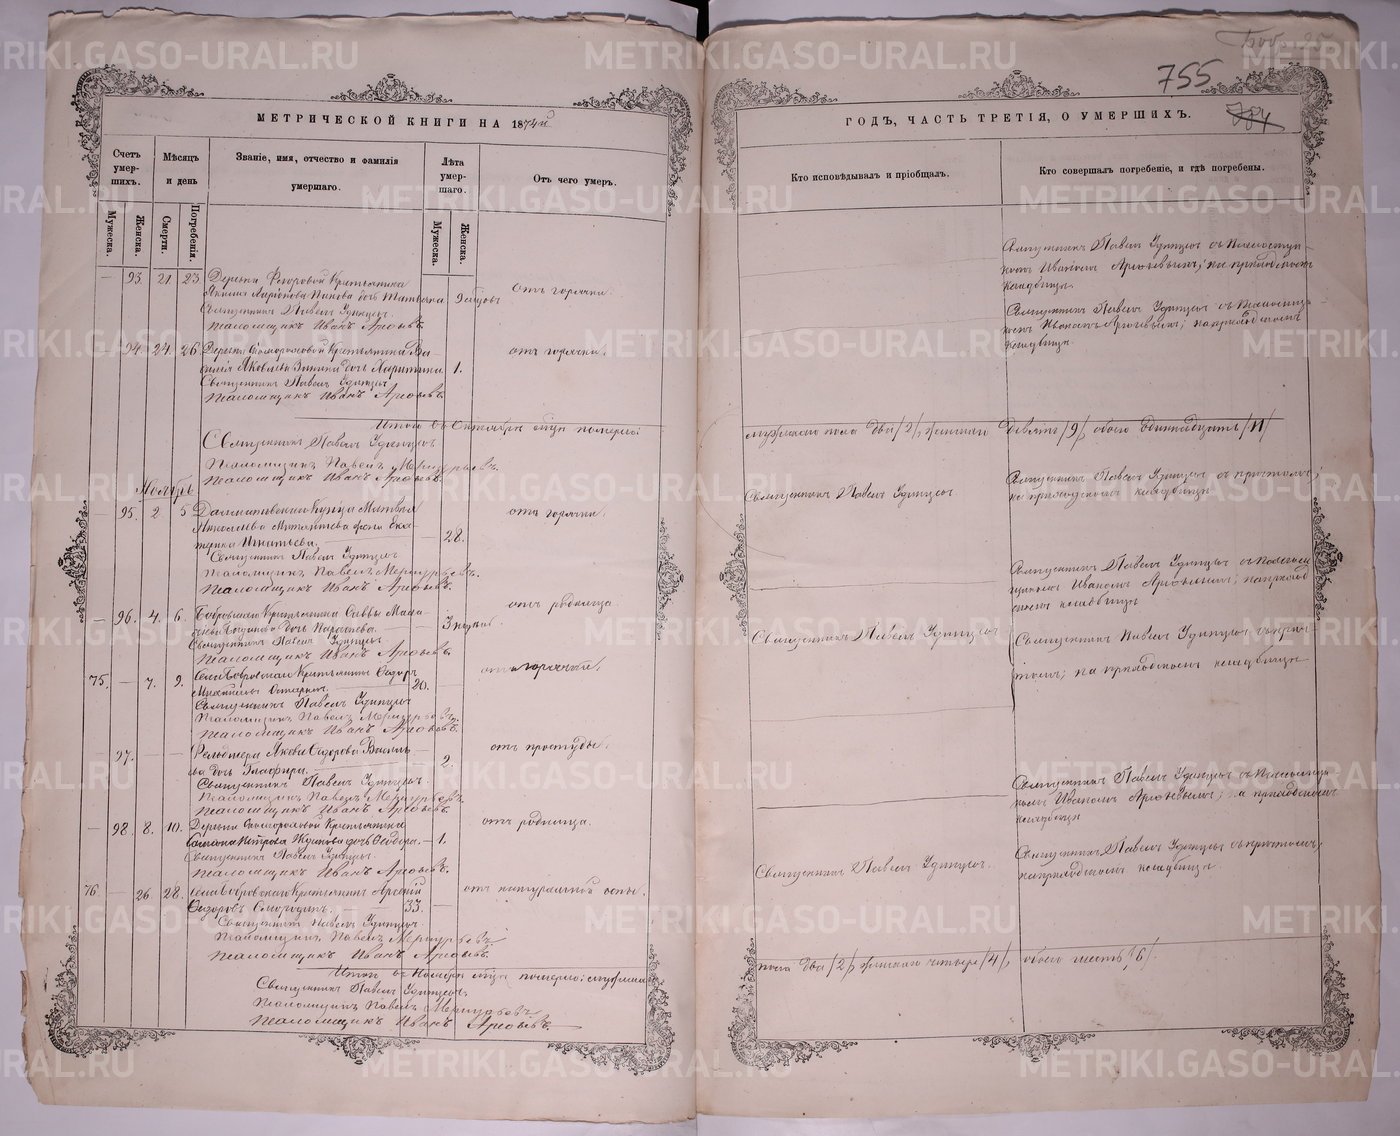 755
784
МЕТРИЧЕСКОЙ КНИГИ НА 1874й
ГОДЪ, ЧАСТЬ ТРЕТІЯ, О УМЕРШИХЪ.
Счетъ умер-
шихъ.
Мѣсяцъ
и день
Званіе, имя, отчество и фамилія
умершаго.
Лѣта
умер-
шаго.
Отъ чего умеръ.
Кто исповѣдывалъ и пріобщалъ.
Кто совершалъ погребеніе, и гдѣ погребены.
Мужеска.
Женска.
Смерти.
Погребенія.
Мужеска.
Женска.
— 93. 21. 23. Деревни Крестьянина
дочь Татьяна 9 мѣсяц. Отъ горячки.
Священникъ Павелъ Удинцевъ.
Псаломщикъ Иванъ Арефьевъ.
Священникъ Павелъ Удинцевъ съ Псаломщи-
комъ Иваномъ Арефьевымъ; на приходскомъ
кладбищѣ.
— 94. 24. 26. Деревни Скоморохов. Крестьянина Ва-
силія Яковлева дочь Харитина 1. отъ горячки.
Священникъ Павелъ Удинцевъ
Псаломщикъ Иванъ Арефьевъ.
Священникъ Павелъ Удинцевъ съ Псаломщи-
комъ Иваномъ Арефьевымъ; на приходскомъ
кладбищѣ.
Итого въ Октябрѣ мѣсяцѣ померло:
мужескаго пола два /2/, женскаго девять /9/, обоего одиннадцать /11/
Священникъ Павелъ Удинцевъ
Псаломщикъ Павелъ Меркурьевъ.
Псаломщикъ Иванъ Арефьевъ.
Ноябрь
— 95. 2. 5. Далматовскаго Купца Матвѣя
Николаева жена Ека-
терина Игнатьева. — 28. отъ горячки.
Священникъ Павелъ Удинцевъ
Псаломщикъ Павелъ Меркурьевъ.
Псаломщикъ Иванъ Арефьевъ.
Священникъ Павелъ Удинцевъ
Священникъ Павелъ Удинцевъ съ причтомъ;
на приходскомъ кладбищѣ.
— 96. 4. 6. Бобровскаго Крестьянина Саввы
дочь 3 недѣл. отъ родимца
Священникъ Павелъ Удинцевъ
Псаломщикъ Иванъ Арефьевъ.
Священникъ Павелъ Удинцевъ съ Псалом-
щикомъ Иваномъ Арефьевымъ; на приход-
скомъ кладбищѣ
75. — 7. 9. Села Бобровскаго Крестьянинъ Ѳедоръ
Михайловъ 20. — отъ горячки.
Священникъ Павелъ Удинцевъ
Псаломщикъ Павелъ Меркурьевъ.
Псаломщикъ Иванъ Арефьевъ.
Священникъ Павелъ Удинцевъ
Священникъ Павелъ Удинцевъ съ прич-
томъ; на приходскомъ кладбищѣ
— 97. — — Фельдшера Якова Ѳедорова Василь-
ева дочь Глафира. — 2. отъ простуды.
Священникъ Павелъ Удинцевъ.
Псаломщикъ Павелъ Меркурьевъ.
Псаломщикъ Иванъ Арефьевъ.
Священникъ Павелъ Удинцевъ съ Псаломщи-
комъ Иваномъ Арефьевымъ; на приходскомъ
кладбищѣ
— 98. 8. 10. Деревни Скомороховой Крестьянина
Петрова дочь Ѳедора. — 1. отъ родимца.
Священникъ Павелъ Удинцевъ.
Псаломщикъ Иванъ Арефьевъ.
76. — 26. 28. Села Бобровскаго Крестьянинъ Арсеній
Ѳедоровъ Смородинъ. — 33. — отъ натуральной оспы.
Священникъ Павелъ Удинцевъ
Псаломщикъ Павелъ Меркурьевъ
Псаломщикъ Иванъ Арефьевъ.
Священникъ Павелъ Удинцевъ.
Священникъ Павелъ Удинцевъ съ причтомъ;
на приходскомъ кладбищѣ.
Итого въ Ноябрѣ мѣсяцѣ померло: мужескаго
пола два /2/, женскаго четыре /4/, обоего шесть /6/.
Священникъ Павелъ Удинцевъ.
Псаломщикъ Павелъ Меркурьевъ
Псаломщикъ Иванъ Арефьевъ.
METRIKI.GASO-URAL.RU